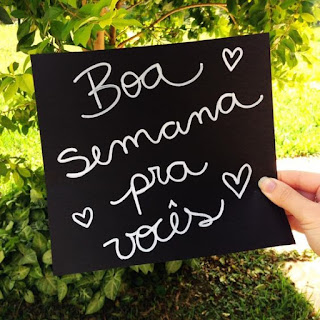 Boa
semana
pra
vocês